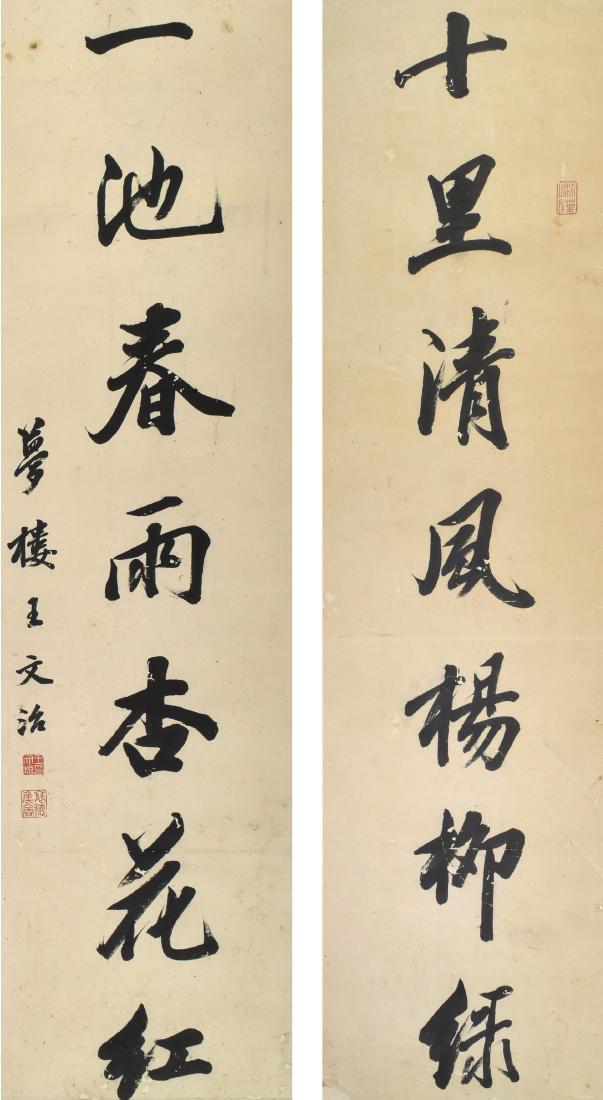 十里清風楊柳緑
一池春雨杏花紅
夢樓王文治